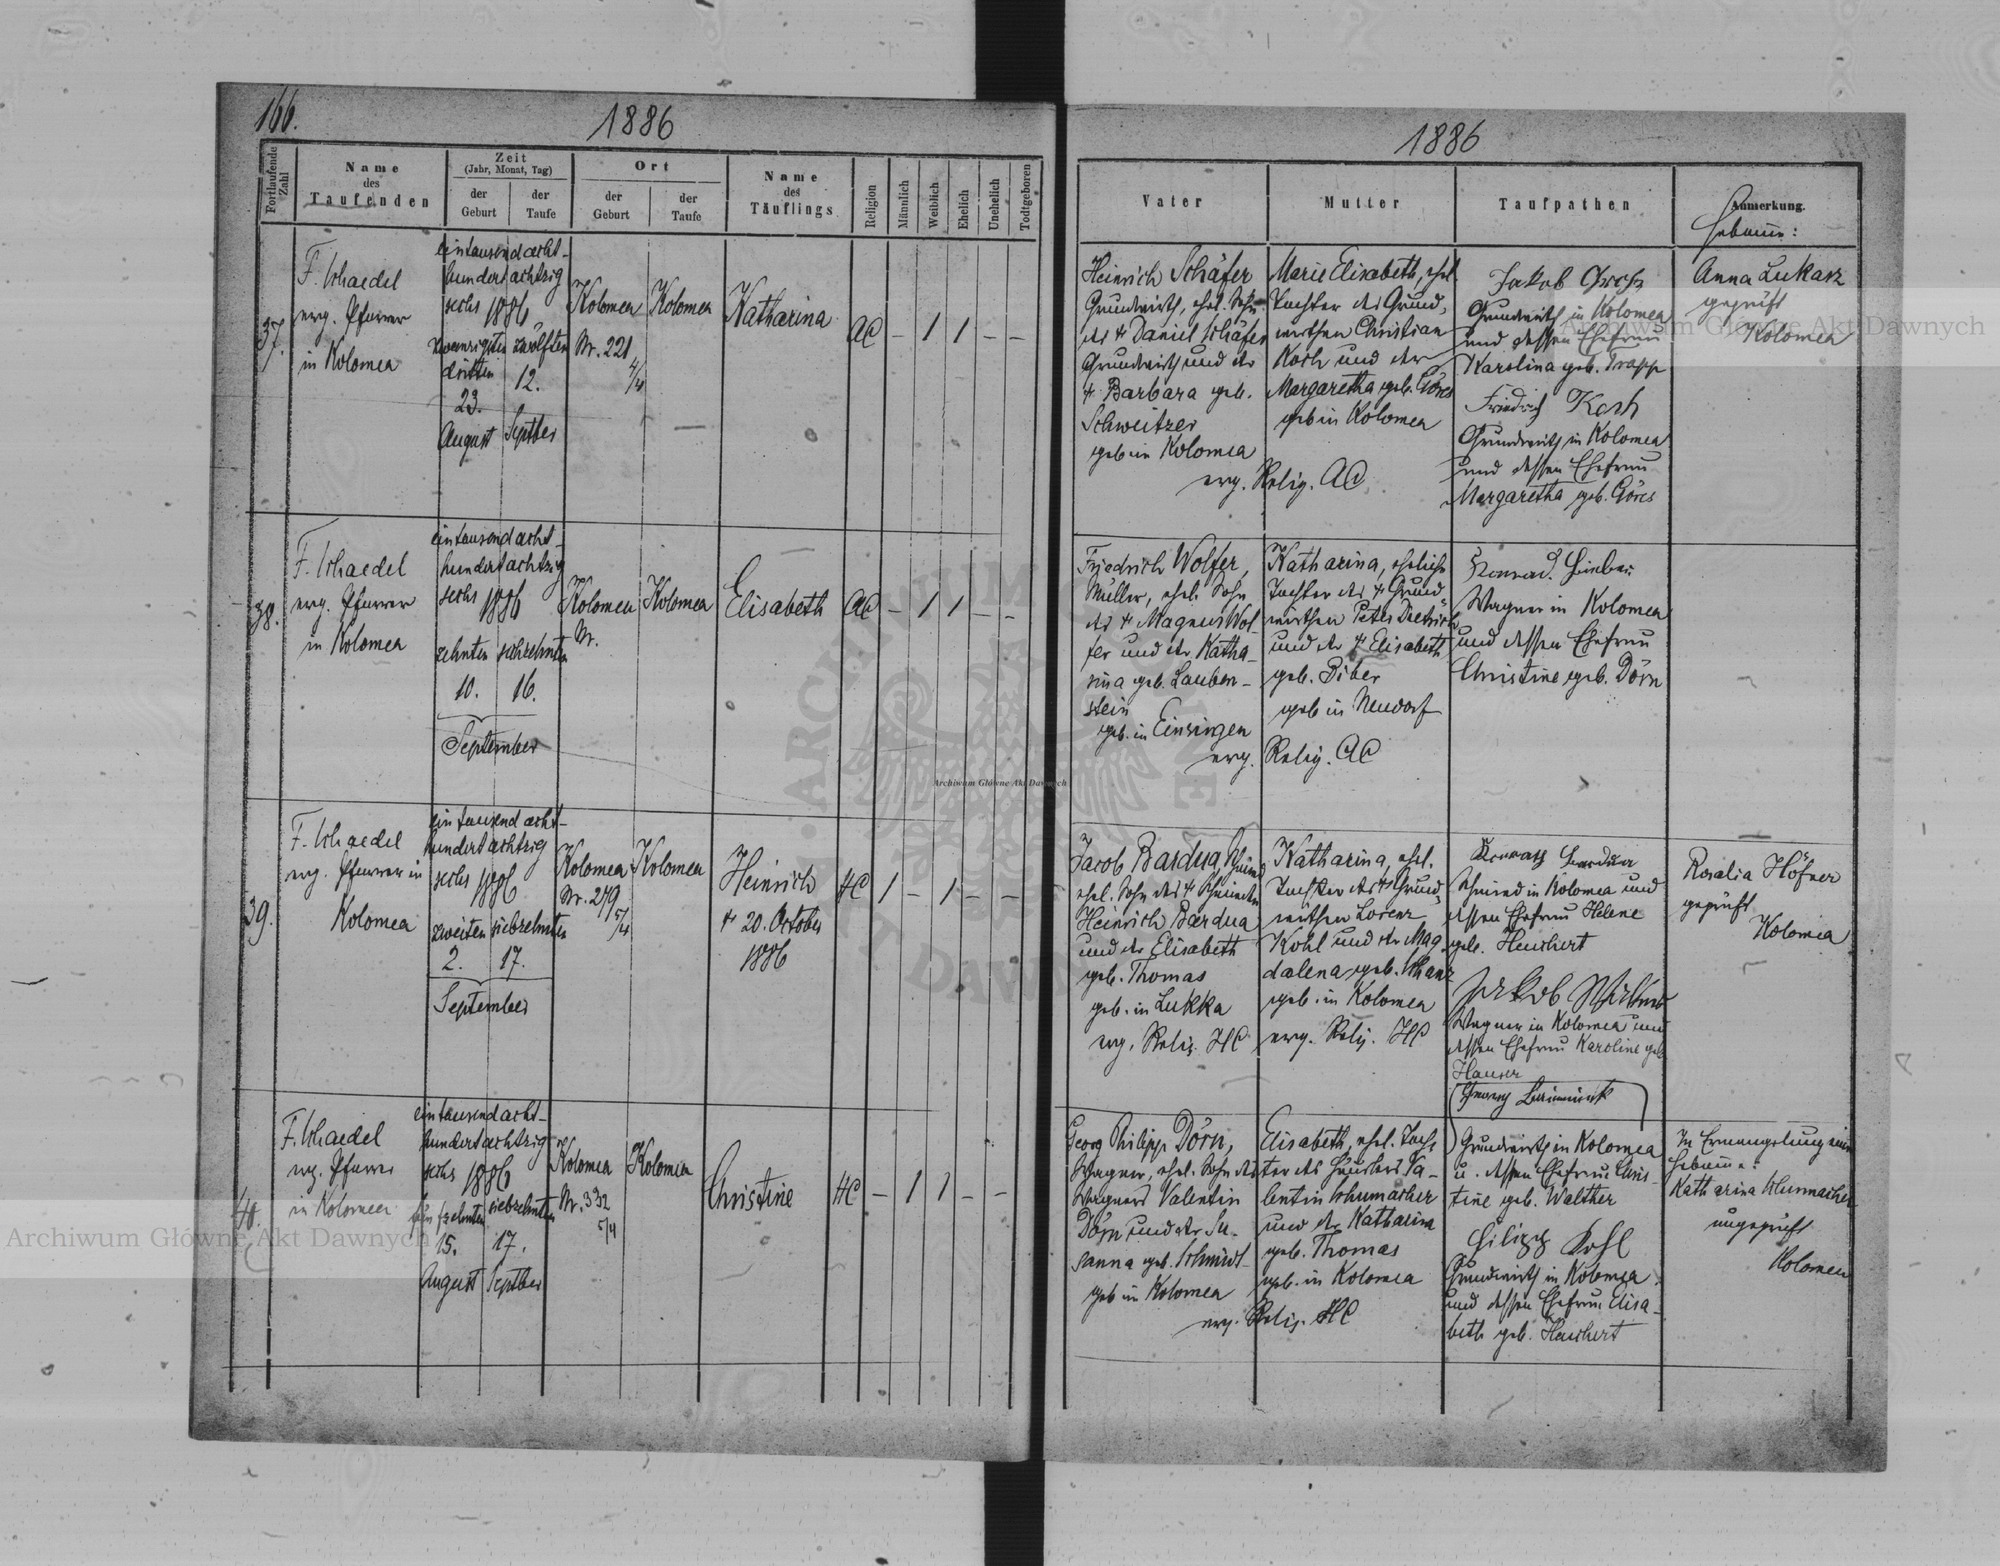 166.
1886
Fortlaufende Zahl
Name
des
Taufenden
Zeit
(Jahr, Monat, Tag)
der
Geburt
der
Taufe
Ort
der
Geburt
der
Taufe
Name
des
Täuflings
Religion
Männlich
Weiblich
Ehelich
Unehelich
Todtgeboren
37.
F. Schaedel
evg. Pfarrer
in Kolomea
eintausend acht-
hundert achtzig
sechs 1886
zwanzigsten
dritten
23.
August
zwölften
12.
Septber
Kolomea
Nr. 221
4/4
Kolomea
Katharina
AC
–
1
1
–
–
38.
F. Schaedel
evg. Pfarrer
in Kolomea
eintausend acht-
hundert achtzig
sechs 1886
zehnten sechzehnten
10. 16.
September
Kolomea
Nr.
Kolomea
Elisabeth
AC
–
1
1
–
–
39.
F. Schaedel
evg. Pfarrer in
Kolomea
eintausend acht-
hundert achtzig
sechs 1886
zweiten siebzehnten
2. 17.
September
Kolomea
Nr. 279
5/4
Kolomea
Heinrich
+ 20. October
1886
HC
1
–
1
–
–
40.
F. Schaedel
evg. Pfarrer
in Kolomea
eintausend acht-
hundert achtzig
sechs 1886
fünfzehnten siebzehnten
15. 17.
August Septber
Kolomea
Nr. 332
5/4
Kolomea
Christine
HC
–
1
1
–
–
1886
Vater
Mutter
Taufpathen
Anmerkung.
Hebamme:
Heinrich Schäfer
Grundwirth, ehel. Sohn
des + Daniel Schäfer
Grundwirth und der
+ Barbara geb.
Schweitzer
geb in Kolomea
Marie Elisabeth, ehel.
Tochter des Grund-
wirthen Christian
Koch und der
Margaretha geb. Göres
geb in Kolomea
evg. Relig. AC
Jakob
Grundwirth in Kolomea
und dessen Ehefrau
Karolina geb. Trapp
Friedrich Koch
Grundwirth in Kolomea
und dessen Ehefrau
Margaretha geb. Göres
Anna Lukasz
geprüft
Kolomea
Friedrich Wolfer,
Müller, ehel. Sohn
des + Magnus Wol-
fer und der Katha-
rina geb. Lauben-
stein
geb. in Einsingen
Katharina, eheliche
Tochter des + Grund-
wirthen Peter Dietrich
und der + Elisabeth
geb. Biber
geb in Neudorf
evg. Relig. AC
Konrad
Wagner in Kolomea
und dessen Ehefrau
Christine geb. Dörn
Jacob Bardua Schmied
ehel. Sohn des + Schmieden
Heinrich Bardua
und der Elisabeth
geb. Thomas
geb. in Lukka
evg. Relig. HC
Katharina, ehel.
Tochter des + Grund-
wirthen Lorenz
Kohl und der Mag-
dalena geb. Schanz
geb. in Kolomea
evg. Relig. HC
Schmied in Kolomea und
dessen Ehefrau Helene
geb. Heuchert
Jakob
Wagner in Kolomea und
dessen Ehefrau Karoline geb
Hauser
Rosalia Höfner
geprüft
Kolomea
Georg Philipp Dörn,
Wagner, ehel. Sohn des
Wagners Valentin
Dörn und der Su-
sanna geb. Schmidt
geb in Kolomea
Elisabeth, ehel. Toch-
ter des Häuslers Va-
lentin Schumacher
und der Katharina
geb. Thomas
geb. in Kolomea
evg. Relig. HC
Georg
Grundwirth in Kolomea
u. dessen Ehefrau Chris-
tine geb. Walther
Filipp Kohl
Grundwirth in Kolomea
und dessen Ehefrau Elisa-
beth geb. Heuchert
In Ermangelung einer
Hebamme:
Katharina Schumacher
ungeprüft
Kolomea
Archiwum Główne Akt Dawnych
Archiwum Główne Akt Dawnych
Archiwum Główne Akt Dawnych